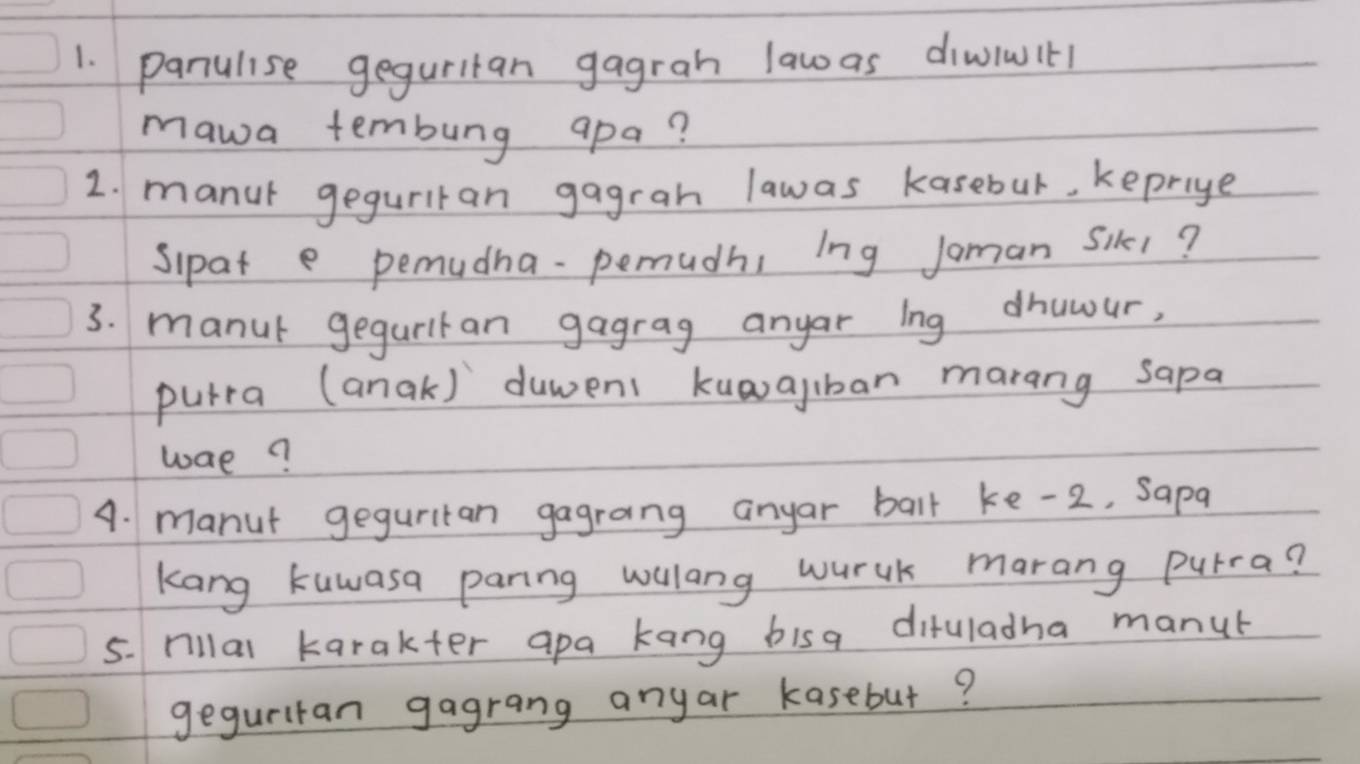 1. panulise geguritan gagrah lawas diwiwiti
mawa tembung apa?
2. manut geguritan gagrah lawas kasebut, kepriye
sipat e pemudha - pemudhi ing jaman siki?
3. manut geguritan gagrag anyar ing dhuwur,
putra (anak) duweni kuwajiban marang sapa
wae?
4. manut geguritan gagrang anyar bait ke-2, sapa
kang kuwasa paring wulang wuruk marang putra?
5. nilai karakter apa kang bisa dituladha manut
geguritan gagrang anyar kasebut?